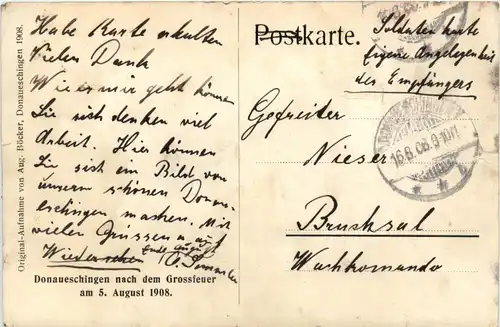 Original-Aufnahme von Aug. Böcker, Donaueschingen 1908.
Habe Karte erhalten
Vielen Dank
Wie es mir geht können
Sie sich denken viel
Arbeit. Hier können
Sie sich ein Bild von
unserm schönen Donau-
eschingen machen. Mit
vielen Grüssen
Wiedersehen Ende Aug.
Donaueschingen nach dem Grossfeuer
am 5. August 1908.
Postkarte.
Soldatenkarte
Eigene Angelegenheit
des Empfängers
16.8.08.9-10V.
Gefreiter
Nieser
Bruchsal
Wachkomando